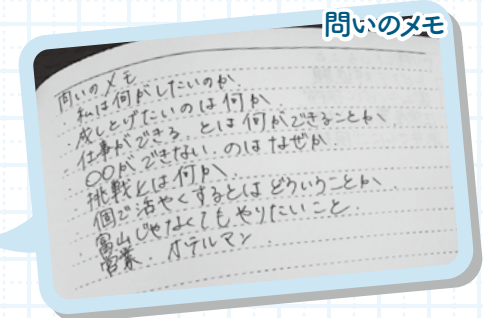 問いのメモ
問いのメモ
私は何がしたいのか
・成しとげたいのは何か
・仕事ができる、とは何ができることか
・〇〇ができない、のはなぜか
・挑戦とは何か
・個で活やくするとはどういうことか
・富山じゃなくてもやりたいこと.
営業 ホテルマン.